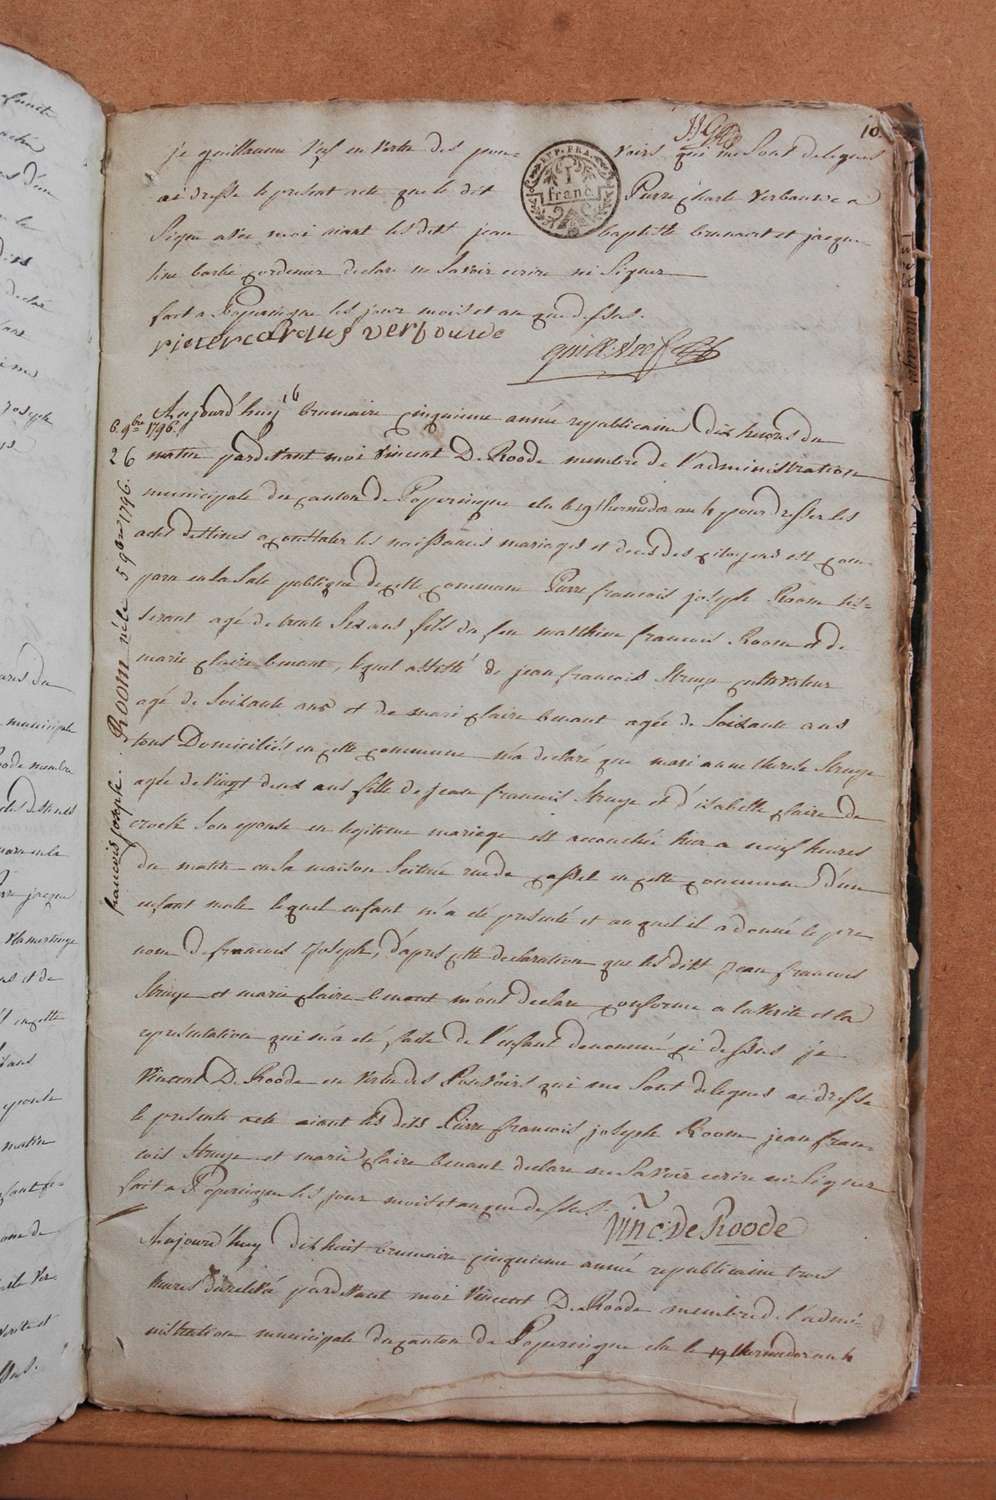 10
je guillaume en vertu des pou- voirs qui me sont delegues
REP. FRA.
1
franc
ai dresse le present acte que le dit Pierre Charle verbouwe a
Signe avec moi aiant les ditt jean baptiste brunaert et jacque-
line barbe declare ne Savoir ecrire ni Signer
fait a Poperingue les jour mois et an que dessus.
pieter carolus verbouwe
guill:
6 9bre 1796.
26
Aujourd'huy 16 brumaire cinquieme année republicaine dix heures du
matin pardevant moi Vincent De Roode membre de l'administration
municipale du canton de Poperingue elu le 19 thermidor an 4 pour dresser les
actes destines a constater les naissances mariages et deces des citoyens est com-
paru en la Sale publique de cette commune Pierre francois joseph Room tis-
serant agé de trente Six ans fils du feu matthieu francois Room et de
marie claire benaut, lequel assisté de jean francois Struye cultivateur
agé de Soixante ans et de mari claire benaut agée de Soixante ans
tous Domiciliés en cette commune m'a declaré que mari anne therese Struye
agée de vingt deux ans fille de jean francois Struye et d'isabelle claire de
crock Son epouse en legitime mariage est accouchée hier a neuf heures
du matin en la maison Scitué rue de cassel en cette commune d'un
enfant male lequel enfant m'a eté presenté et auquel il a donné le pre
nom de francois Joseph, d'apres cette declaration que les ditt jean francois
Struye et marie claire benaut m'ont declare conforme a la verite et la
representation qui m'a eté faite de l'enfant denommé ci dessus je
Vincent De Roode en vertu des Pouvoirs qui me Sont delegues ai dresse
le presente acte aiant les dits Pierre francois joseph Room jean fran-
cois Struye et marie claire benaut declare ne Savoir ecrire ni Signer
fait a Poperingue les jour mois et an que dessus.
Vinc: De Roode
francois joseph. Room né le 5 9bre 1796.
Aujourd'huy dix huit brumaire cinquieme année republicaine trois
heures de relevé pardevant moi Vincent De Roode membre de l'admi-
nistration municipale du canton de Poperingue elu le 19 thermidor an 4